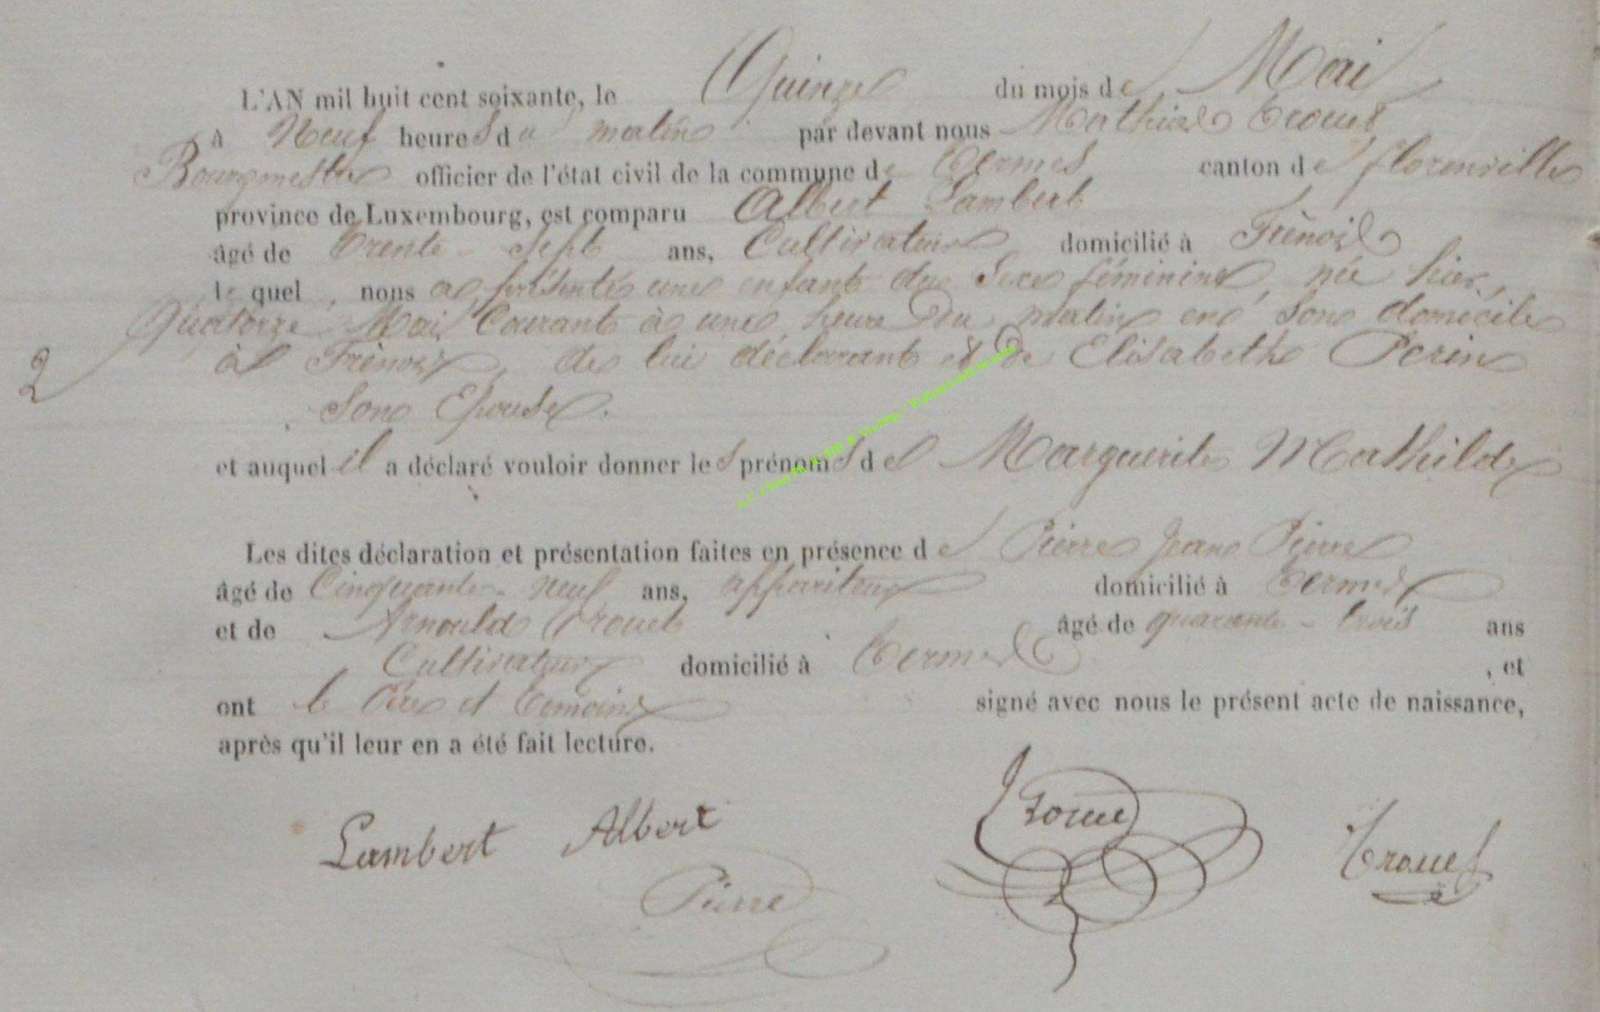 L'AN mil huit cent soixante, le Quinze du mois de Mai
à Neuf heures du matin par devant nous Mathias Troues
Bourgmestre officier de l'état civil de la commune de Termes canton de florenville
province de Luxembourg, est comparu Albert Lambert
âgé de trente-sept ans, Cultivateur domicilié à Frénois
lequel, nous a présenté une enfant du Sexe féminine, née hier,
Quatorze Mai Courant à une heure du matin en son domicile
à Frénois, de lui déclarant et de Elisabeth Perin
2
Son Epouse.
et auquel il a déclaré vouloir donner les prénoms de Marguerite Mathilde
Les dites déclaration et présentation faites en présence de Pierre Jean Pierre
âgé de Cinquante-neuf ans, appariteur domicilié à Termes
et de Arnould Trouet âgé de quarante-trois ans
Cultivateur domicilié à Termes, et
ont le Père et temoins signé avec nous le présent acte de naissance,
après qu'il leur en a été fait lecture.
Lambert Albert
Pierre